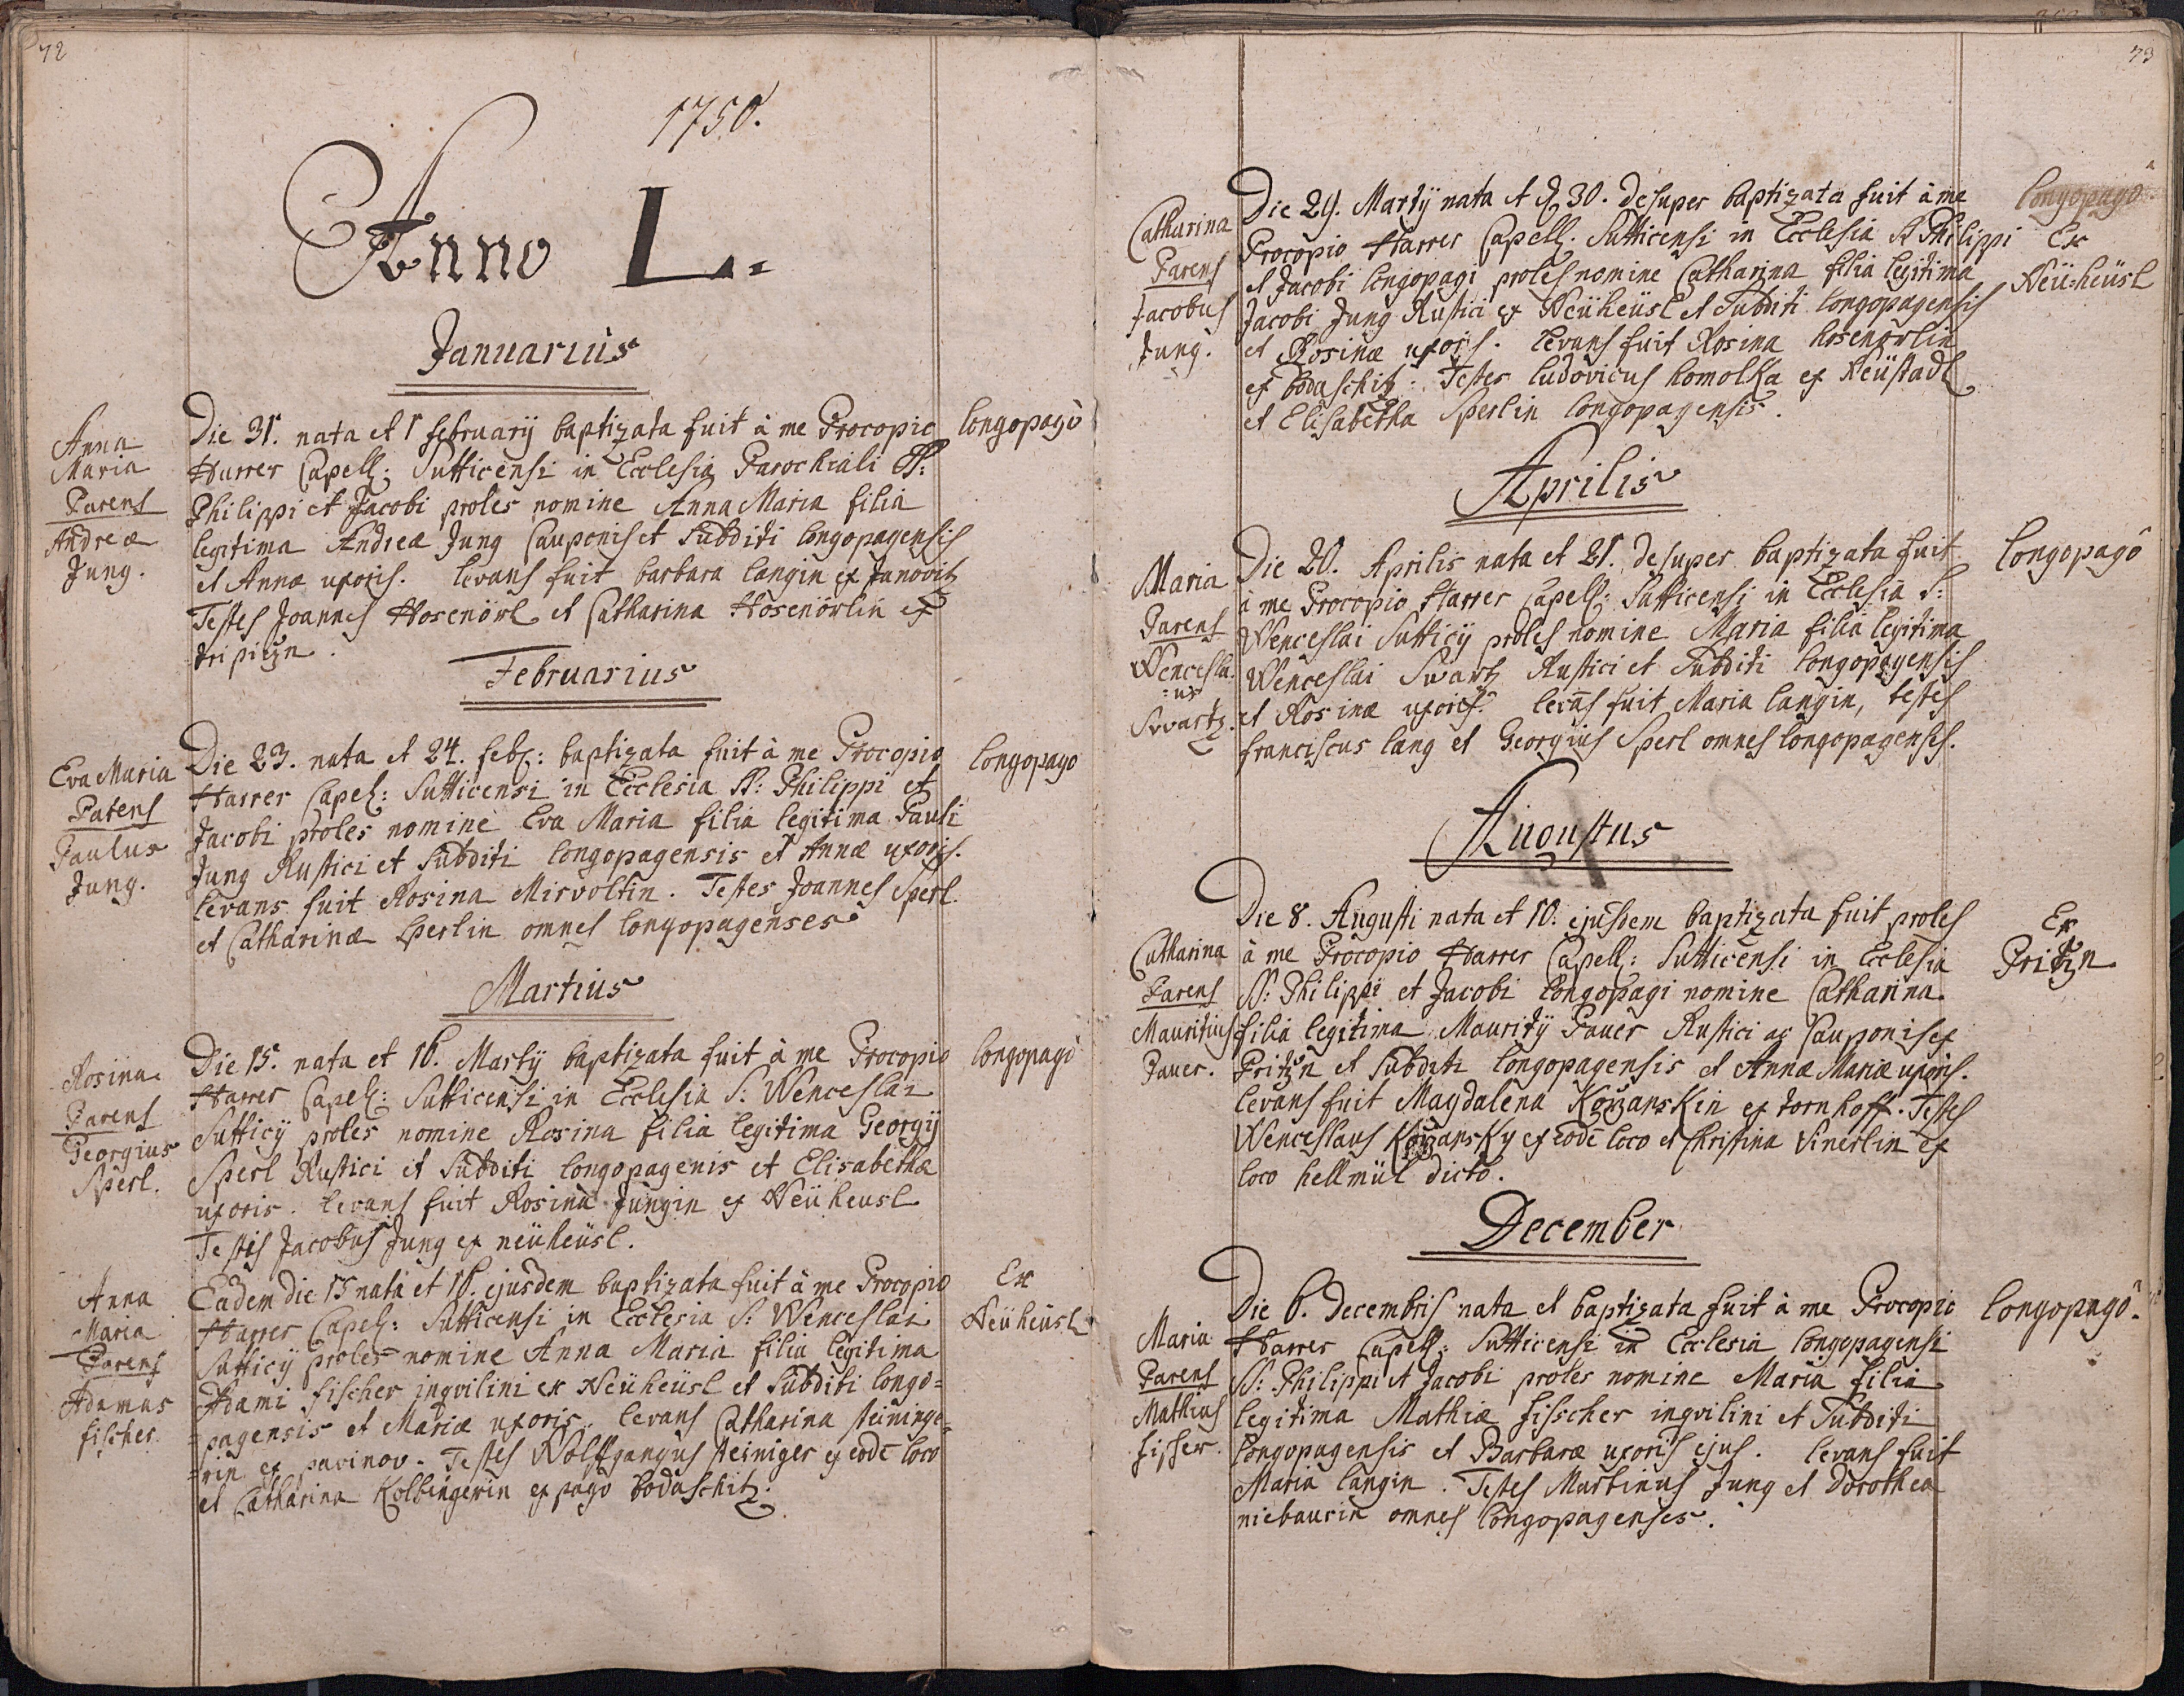 72
1750.
Anno L.
Januarius
Anna
Maria
Parens
Andreæ
Jung.
Die 31. nata et 1 february baptizata fuit à me Procopio
Harrer Capell: Sutticensi in Ecclesia Parochiali SS:
Philippi et Jacobi proles nomine Anna Maria filia
legitima Andreæ Jung Cauponis et Subditi longopagensis
et Annæ uxoris. levans fuit barbara langin ex Janovitz
Testes Joannes Hosenörl et Catharina Hosenörlin ex
longopagò
Februarius
Eva Maria
Patens
Paulus
Jung.
Die 23. nata et 24. feb: baptizata fuit à me Procopio
Harrer Capel: Sutticensi in Ecclesia SS: Philippi et
Jacobi proles nomine Eva Maria filia legitima Pauli
Jung Rustici et Subditi longopagensis et Annæ uxoris.
levans fuit Rosina Misvoltin. Testes Joannes Sperl
et Catharinæ Sperlin omnes longopagenses
longopago
Martius
Rosina
Parens
Georgius
Sperl.
Die 15. nata et 16. Martij baptizata fuit à me Procopio
Harrer Capel: Sutticensi in Ecclesia S: Wenceslai
Sutticij proles nomine Rosina filia legitima Georgij
Sperl Rustici et Subditi longopagenis et Elisabethæ
uxoris. levans fuit Rosina Jungin ex Neüheusl
Testis Jacobus Jung ex neüheüsl.
longopagò
Anna
Maria
Parens
Adamus
fischer
Eadem die 15 nata et 16. ejusdem baptizata fuit à me Procopio
Harrer Capel: Sutticensi in Ecclesia S: Wenceslai
Sutticij proles nomine Anna Maria filia legitima
Adami fischer inqvilini ex Neüheüsl et Subditi longo=
=pagensis et Mariæ uxoris. levans Catharina steininge=
=rin ex pavinov. Testes Wolffgangus steiniger ex eodē loco
et Catharina Kolbingerin ex pago bodaschitz.
Ex
Neüheüsl
73
Catharina
Parens
Jacobus
Jung.
Die 29. Martij nata et 30. desuper baptizata fuit à me
Procopio Harrer Capell. Sutticensi in Ecclesia SS Philippi
et Jacobi longopagi proles nomine Catharina filia legitima
Jacobi Jung Rustici ex Neüheüsl et Subditi longopagensis
et Rosinæ uxoris. levans fuit Rosina hosenörlin
ex bodaschitz. Testes ludovicus homolka ex Neüstadl
et Elisabetha Sperlin longopagensis.
longopagò
Ex
Neü=heüsl
Aprilis
Maria
Parens
Wencesla=
=us
Swartz.
Die 20. Aprilis nata et 21. desuper baptizata fuit
à me Procopio Harrer Capell: Sutticensi in Ecclesia S:
Wenceslai Sutticij proles nomine Maria filia legitima
Wenceslai Swartz Rustici et Subditi longopagensis
et Rosinæ uxoris. levās fuit Maria langin, testes
franciscus lang et Georgius Sperl omnes longopagenses.
longopagò
Augustus
Catharina
Parens
Mauritius
Pauer.
Die 8. Augusti nata et 10. ejusdem baptizata fuit proles
à me Procopio Harrer Capell: Sutticensi in Ecclesia
SS: Philippi et Jacobi longopagi nomine Catharina
filia legitima Mauritij Pauer Rustici ac Cauponis ex
Pritzn et Subditi longopagensis et Annæ Mariæ uxoris.
levans fuit Magdalena ex dornhoff. Testes
Wenceslaus ex eodē loco et Christina Sinerlin ex
loco hellmül dicto.
Ex
Pritzn
December
Maria
Parens
Mathias
fisher.
Die 6. Decembris nata et baptizata fuit à me Procopio
Harrer Capell: Sutticensi in Ecclesia longopagensi
SS: Philippi et Jacobi proles nomine Maria filia
legitima Mathiæ fischer inqvilini et Subditi
longopagensis et Barbaræ uxoris ejus. levans fuit
Maria langin. Testes Martinus Jung et Dorothea
niebaurin omnes longopagenses.
longopagò.